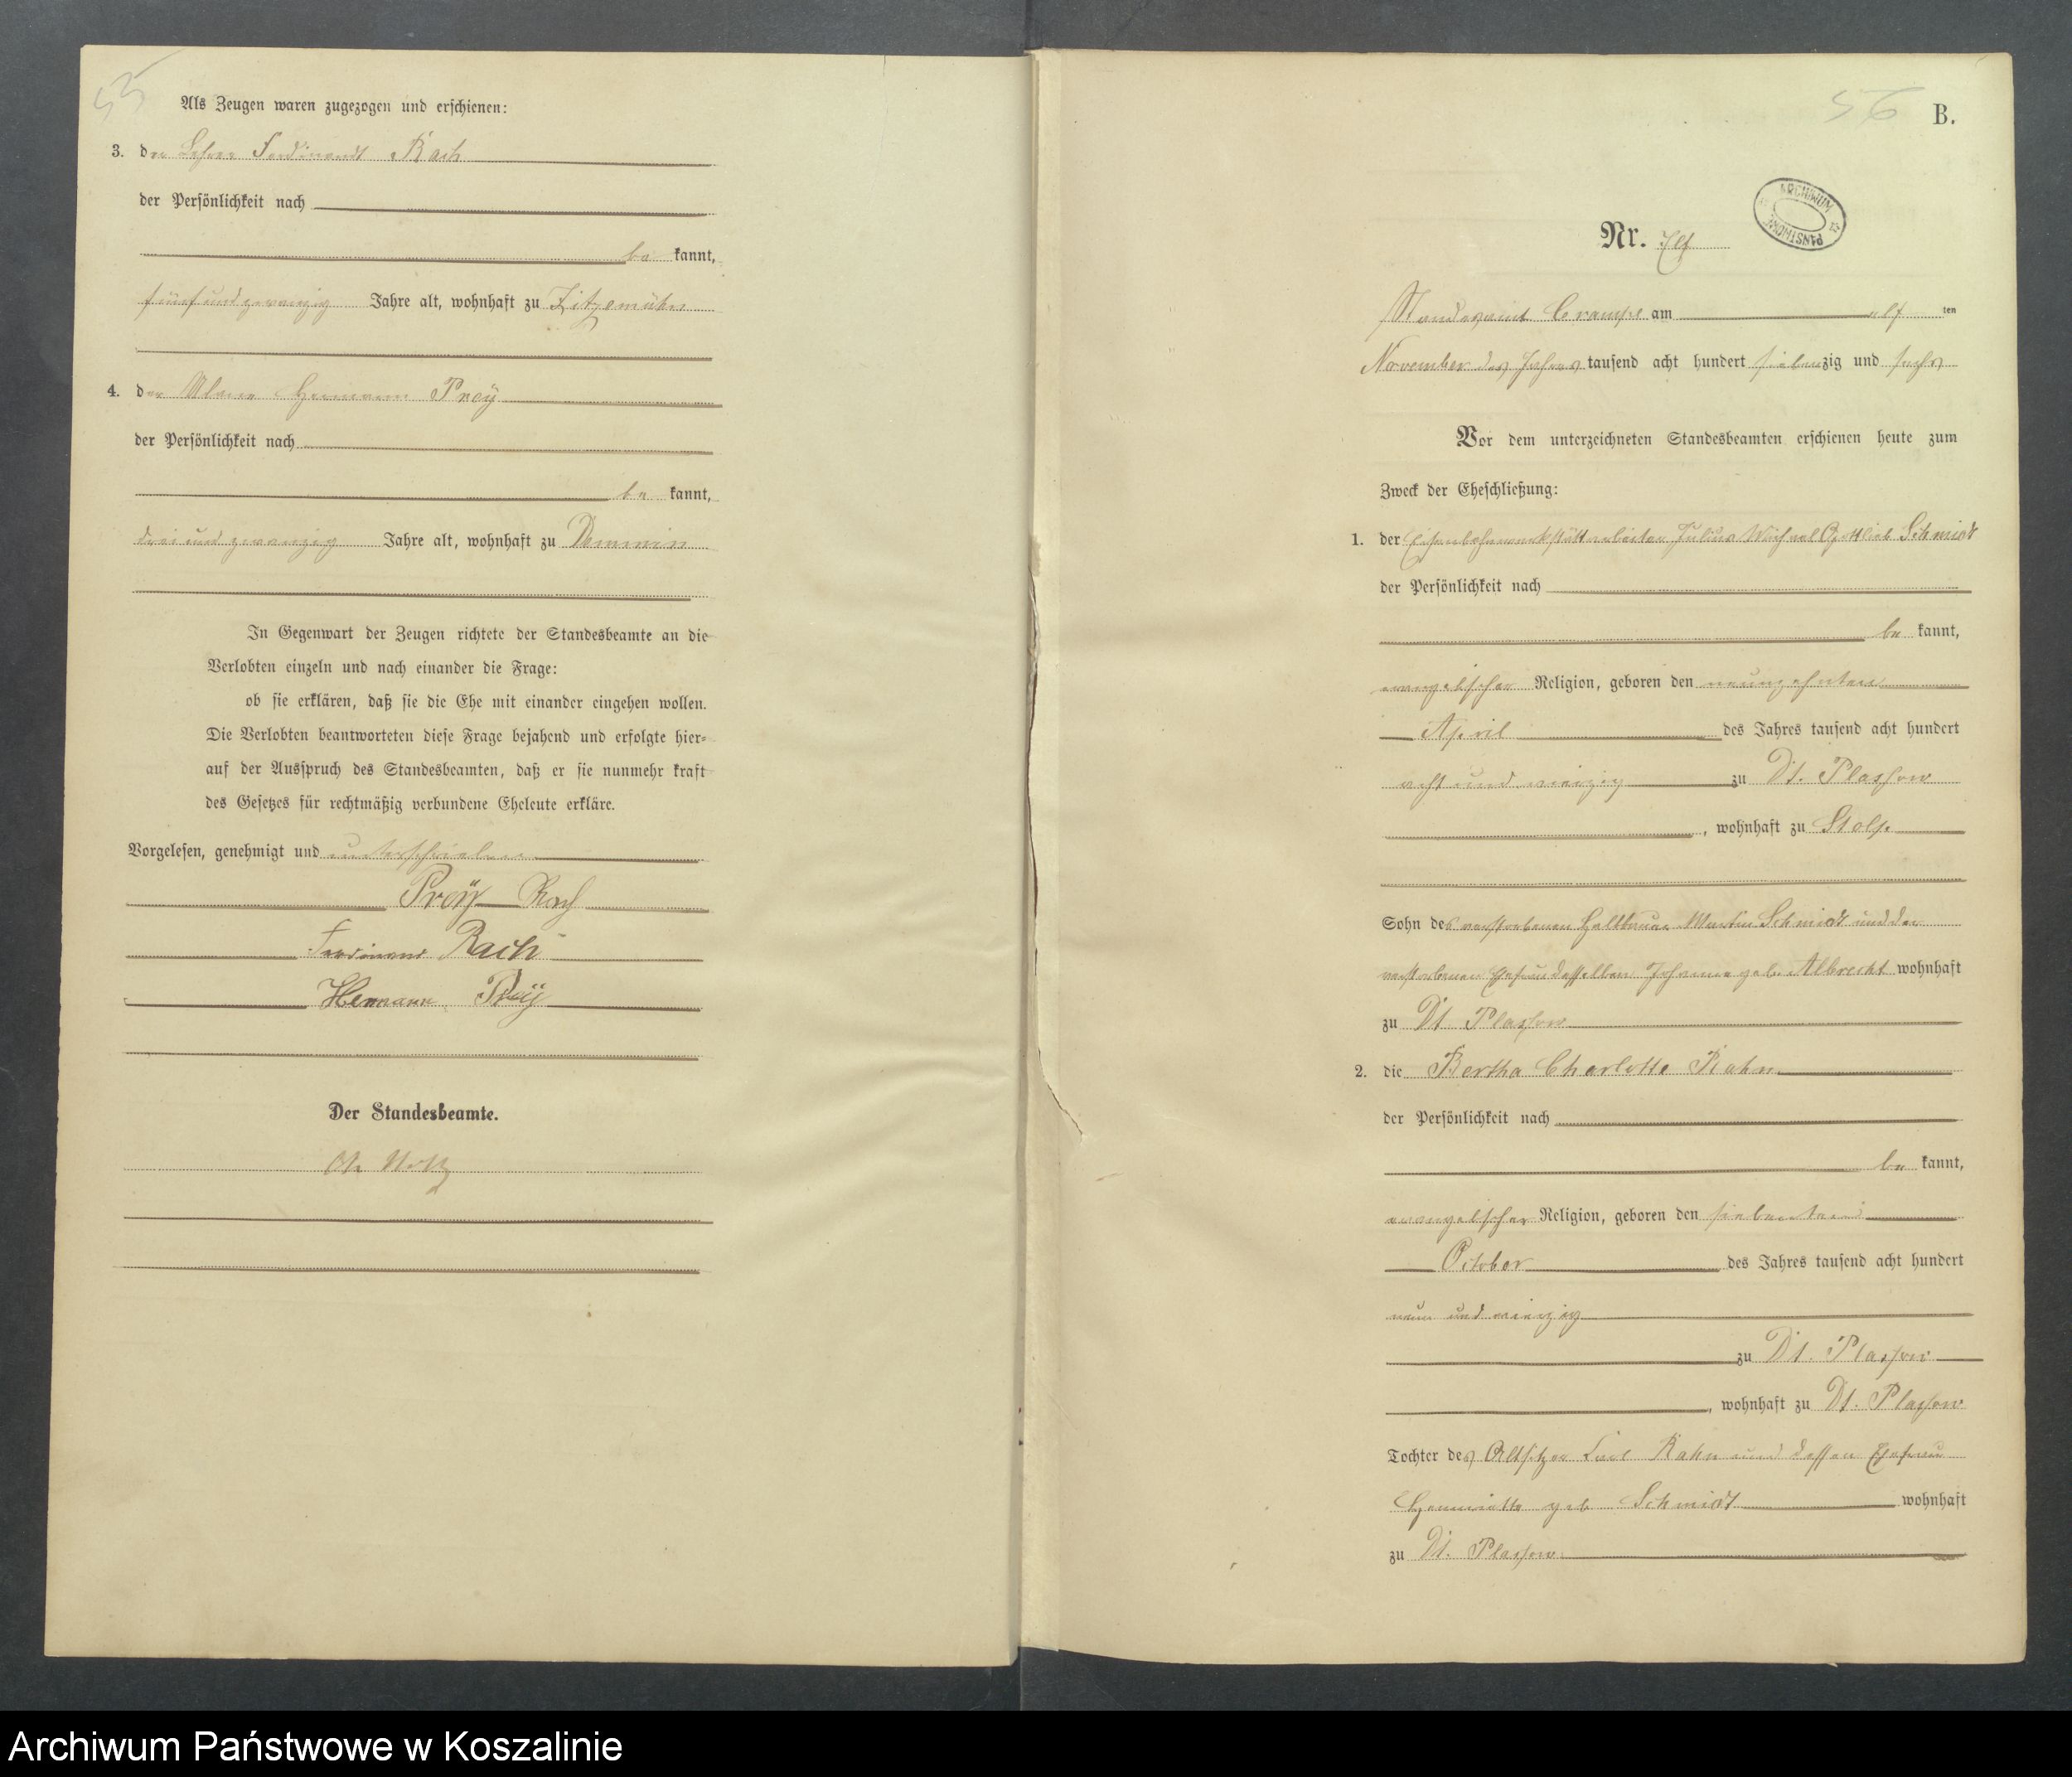 55
Als Zeugen waren zugezogen und erschienen:
3. der Lehrer Ferdinandt Rach
der Persönlichkeit nach
be kannt,
fünfundzwanzig Jahre alt, wohnhaft zu Zitzemühe
4. der Ulane Hermann Preÿ
der Persönlichkeit nach
be kannt,
dreiundzwanzig Jahre alt, wohnhaft zu Demmin
In Gegenwart der Zeugen richtete der Standesbeamte an die
Verlobten einzeln und nach einander die Frage:
ob sie erklären, daß sie die Ehe mit einander eingehen wollen.
Die Verlobten beantworteten diese Frage bejahend und erfolgte hier-
auf der Ausspruch des Standesbeamten, daß er sie nunmehr kraft
des Gesetzes für rechtmäßig verbundene Eheleute erkläre.
Vorgelesen, genehmigt und unterschrieben
Preÿ Rach
Ferdinand Rach
Hermann Preÿ
Der Standesbeamte.
56
B.
ARCHIWUM PAŃSTWOWE
Nr. Elf
Standesamt Crampe am elf ten
November des Jahres tausend acht hundert siebenzig und sechs
Vor dem unterzeichneten Standesbeamten erschienen heute zum
Zweck der Eheschließung:
1. der Eisenbahnwerkstättarbeiter Julius Michael Gottlieb Schmidt
der Persönlichkeit nach
be kannt,
evangelischer Religion, geboren den neunzehnten
April des Jahres tausend acht hundert
acht und vierzig zu Dt. Plassow
, wohnhaft zu Stolp
Sohn des verstorbenen Halbbauer Martin Schmidt und der
verstorbenen Ehefrau desselben Johanne geb. Albrecht wohnhaft
zu Dt Plassow
2. die Bertha Charlotte Rahn
der Persönlichkeit nach
be kannt,
evangelischer Religion, geboren den siebenten
October des Jahres tausend acht hundert
neun und vierzig
zu Dt. Plassow
, wohnhaft zu Dt. Plassow
Tochter des Altsitzer Carl Rahn und dessen Ehefrau
Henriette geb Schmidt wohnhaft
zu Dt. Plassow
Archiwum Państwowe w Koszalinie